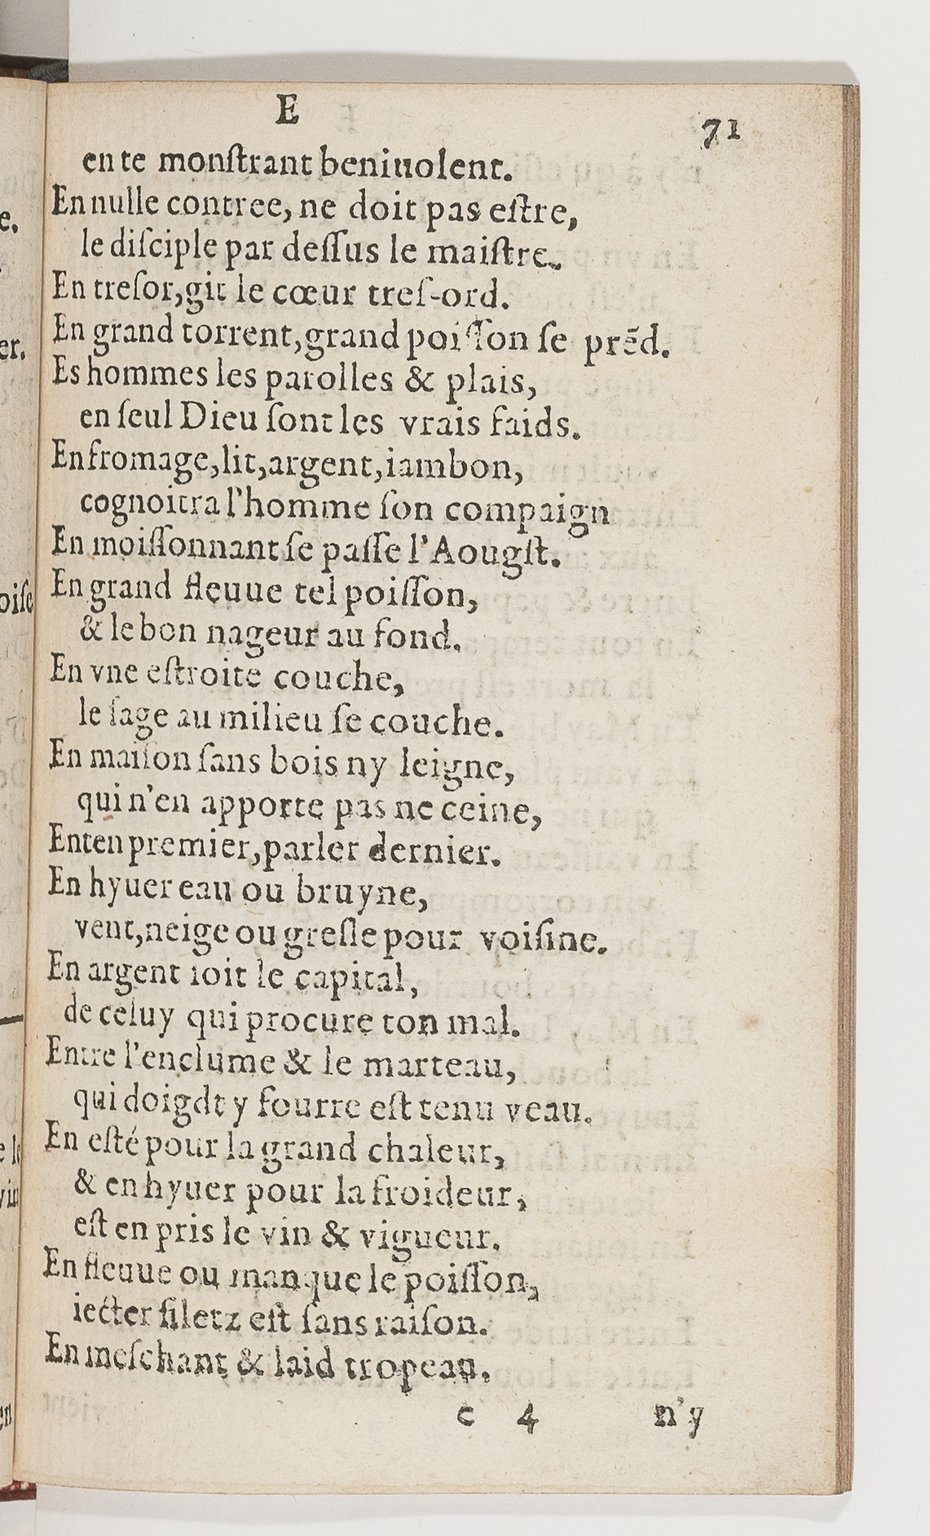 E
71
en te monſtrant beniuolent.
En nulle contree, ne doit pas eſtre,
le diſciple par deſſus le maiſtre.
En treſor, git le cœur treſ-ord.
En grand torrent, grand poiſſon ſe prẽd.
Es hommes les parolles & plais,
en ſeul Dieu ſont les vrais faids.
En fromage, lit, argent, iambon,
cognoitra l'homme ſon compaign
En moiſſonnant ſe paſſe l'Aougſt.
En grand fleuue tel poiſſon,
& le bon nageur au fond.
En vne eſtroite couche,
le ſage au milieu ſe couche.
En maiſon ſans bois ny leigne,
qui n'en apporte pas ne ceine,
Enten premier, parler dernier.
En hyuer eau ou bruyne,
vent, neige ou greſle pour voiſine.
En argent ſoit le capital,
de celuy qui procure ton mal.
Entre l'enclume & le marteau,
qui doigdt y fourre eſt tenu veau.
En eſté pour la grand chaleur,
& en hyuer pour la froideur,
eſt en pris le vin & vigueur.
En fleuue ou manque le poiſſon,
iecter filetz eſt ſans raiſon.
En meſchant & laid tropeau.
c 4 n'y